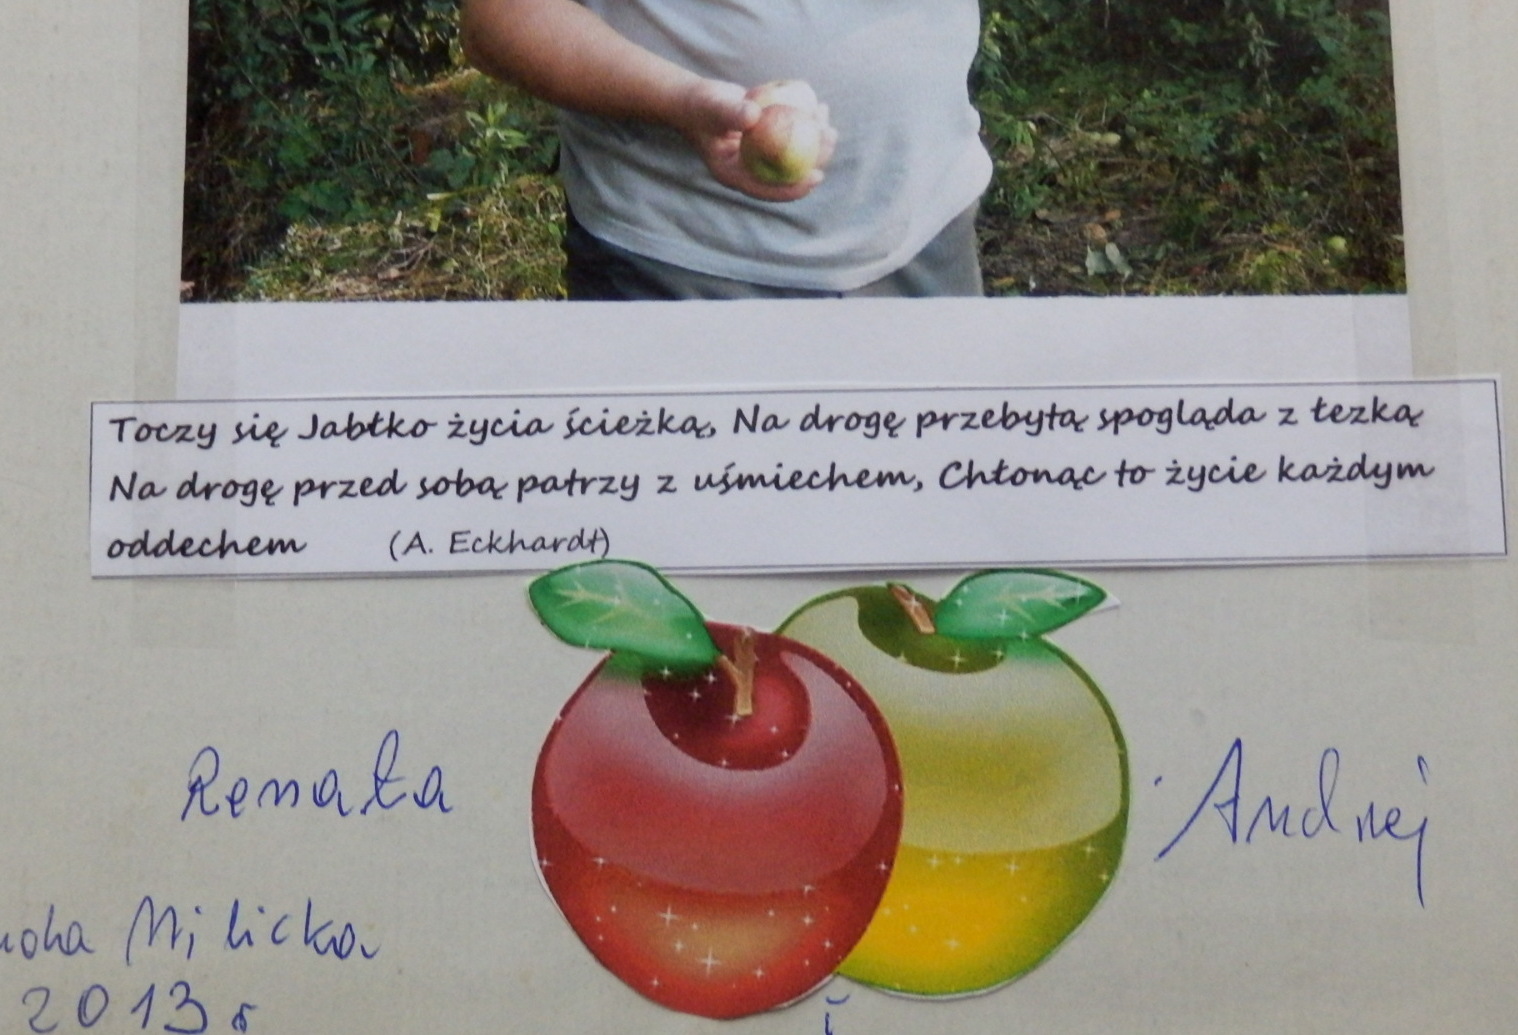 Toczy się Jabłko życia ścieżką, Na drogę przebytą spogląda z łezką
Na drogę przed sobą patrzy z uśmiechem, Chłonąc to życie każdym
oddechem (A. Eckhardt)
Renata
Andrej
Milicka
2013 r